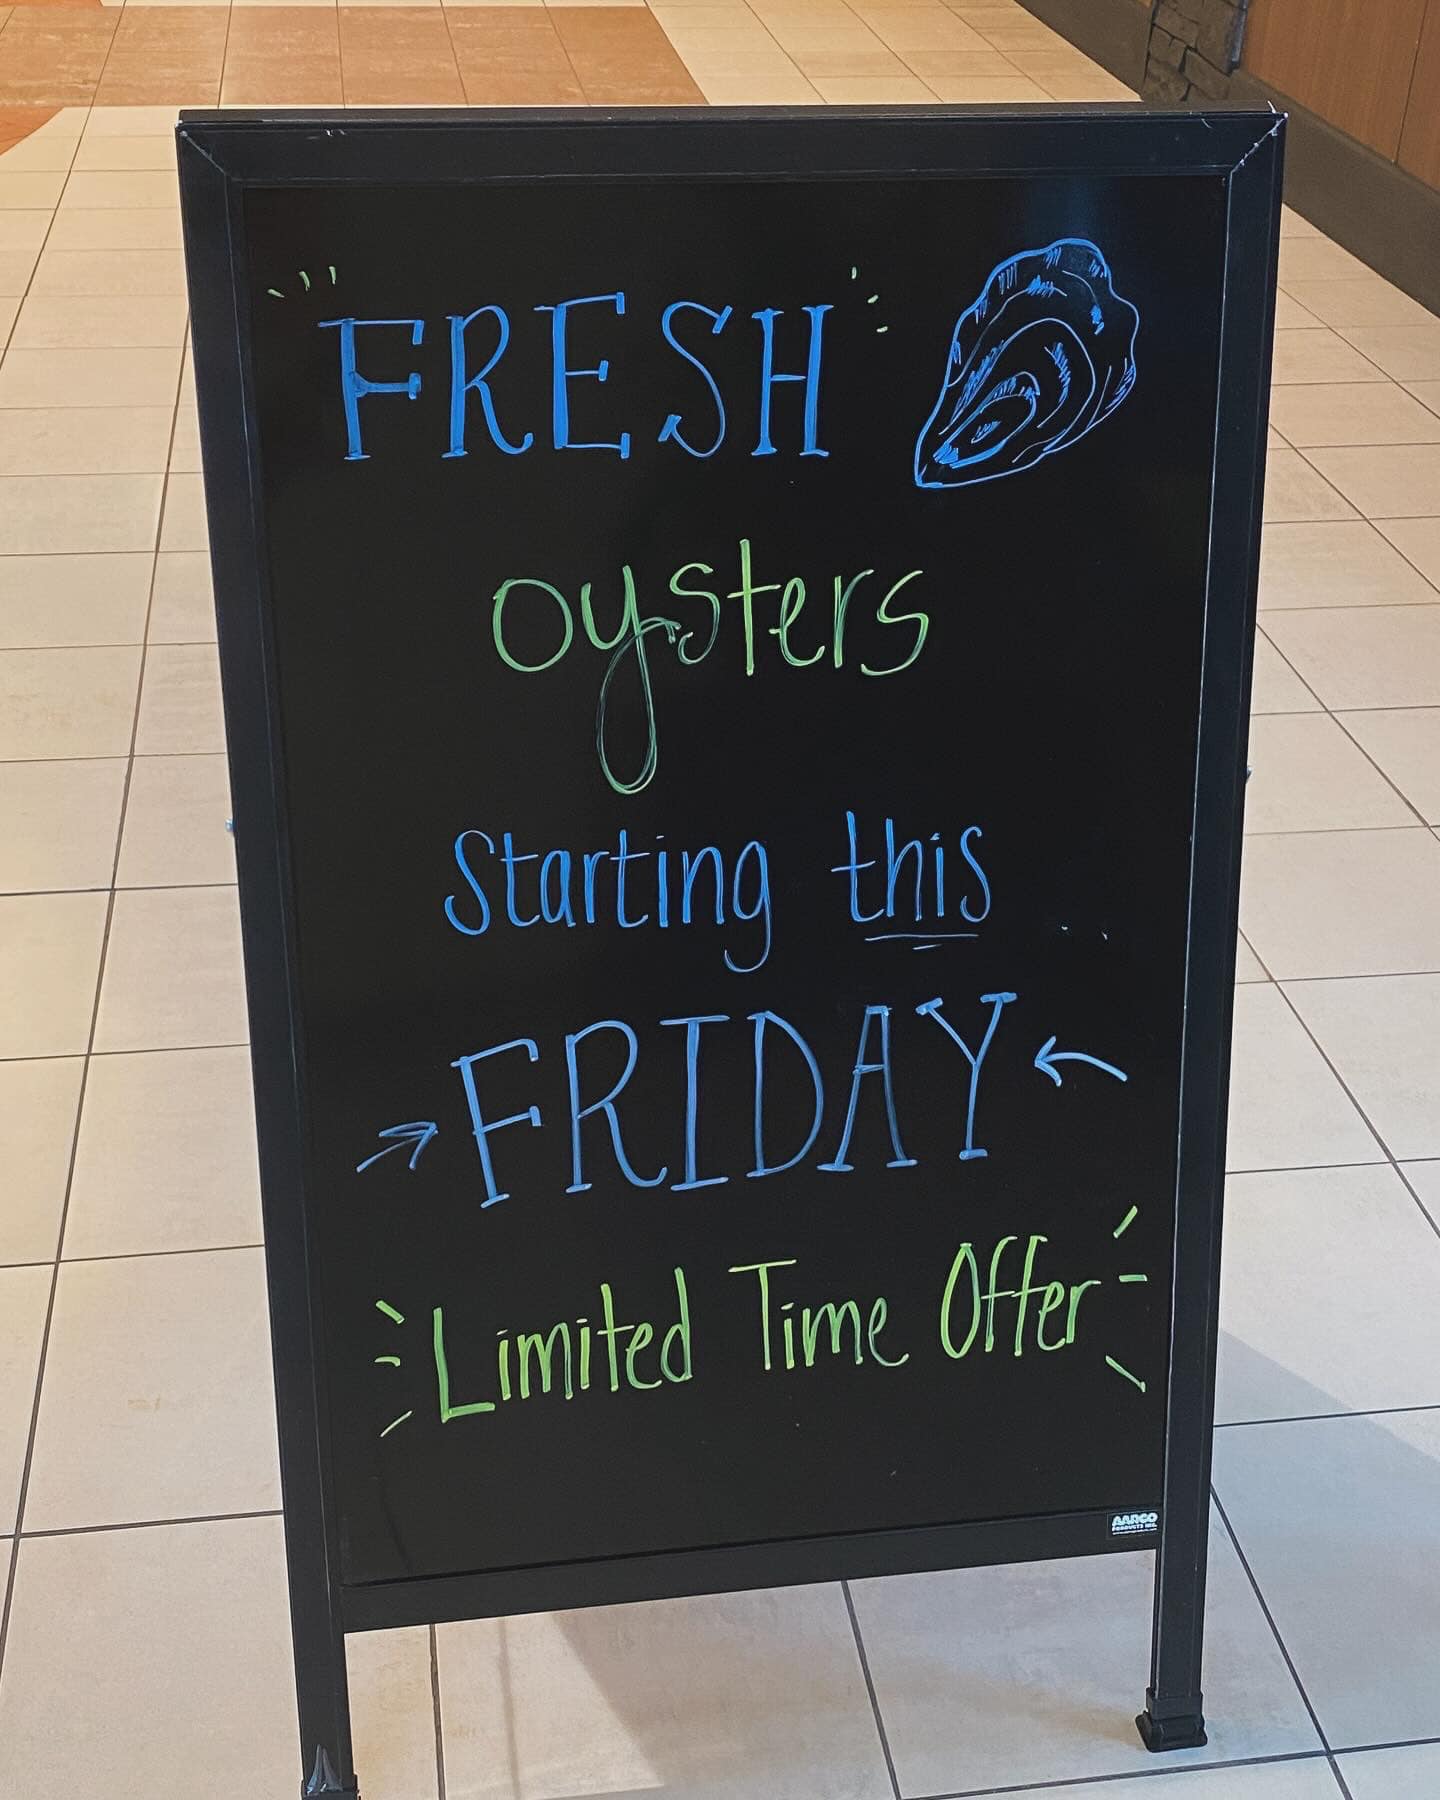 FRESH
oysters
Starting this
FRIDAY
Limited Time Offer
AARCO
PRODUCTS INC.